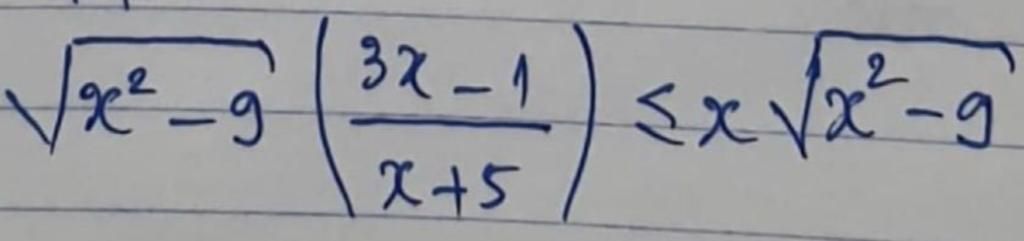 √(x² - 9) ((3x - 1)/(x + 5)) ≤ x √(x² - 9)